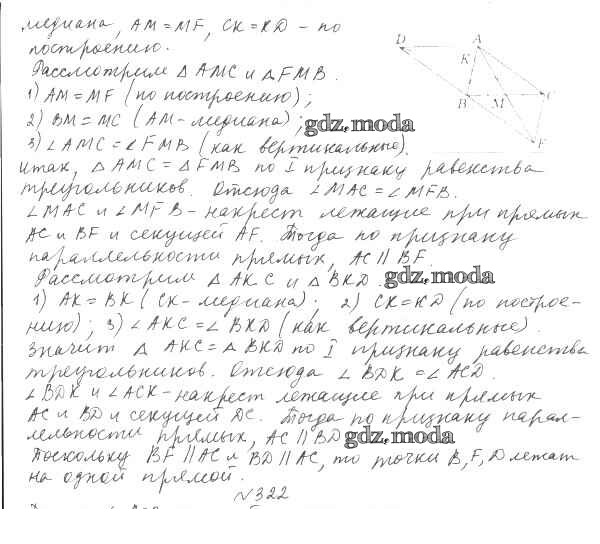 медиана, AM = MF, CK = KD – по
построению.
Рассмотрим △ AMC и △ FMB.
1) AM = MF (по построению);
2) BM = MC (AM - медиана); gdz.moda
3) ∠AMC = ∠FMB (как вертикальные).
Итак, △ AMC = △FMB по I признаку равенства
треугольников. Отсюда ∠MAC = ∠MFB.
∠MAC и ∠MFB - накрест лежащие при прямых
AC и BF и секущей AF. Тогда по признаку
параллельности прямых, AC || BF.
Рассмотрим △ AKC и △ BKD. gdz.moda
1) AK = BK (CK - медиана); 2) CK = KD (по построе-
нию); 3) ∠AKC = ∠BKD (как вертикальные).
Значит △ AKC = △ BKD по I признаку равенства
треугольников. Отсюда ∠ BDK = ∠ACD.
∠BDK и ∠ACK - накрест лежащие при прямых
AC и BD и секущей DC. Тогда по признаку парал-
лельности прямых, AC || BD gdz.moda
Поскольку BF || AC и BD || AC, то точки B, F, D лежат
на одной прямой.
N322
D
A
K
B
M
C
F